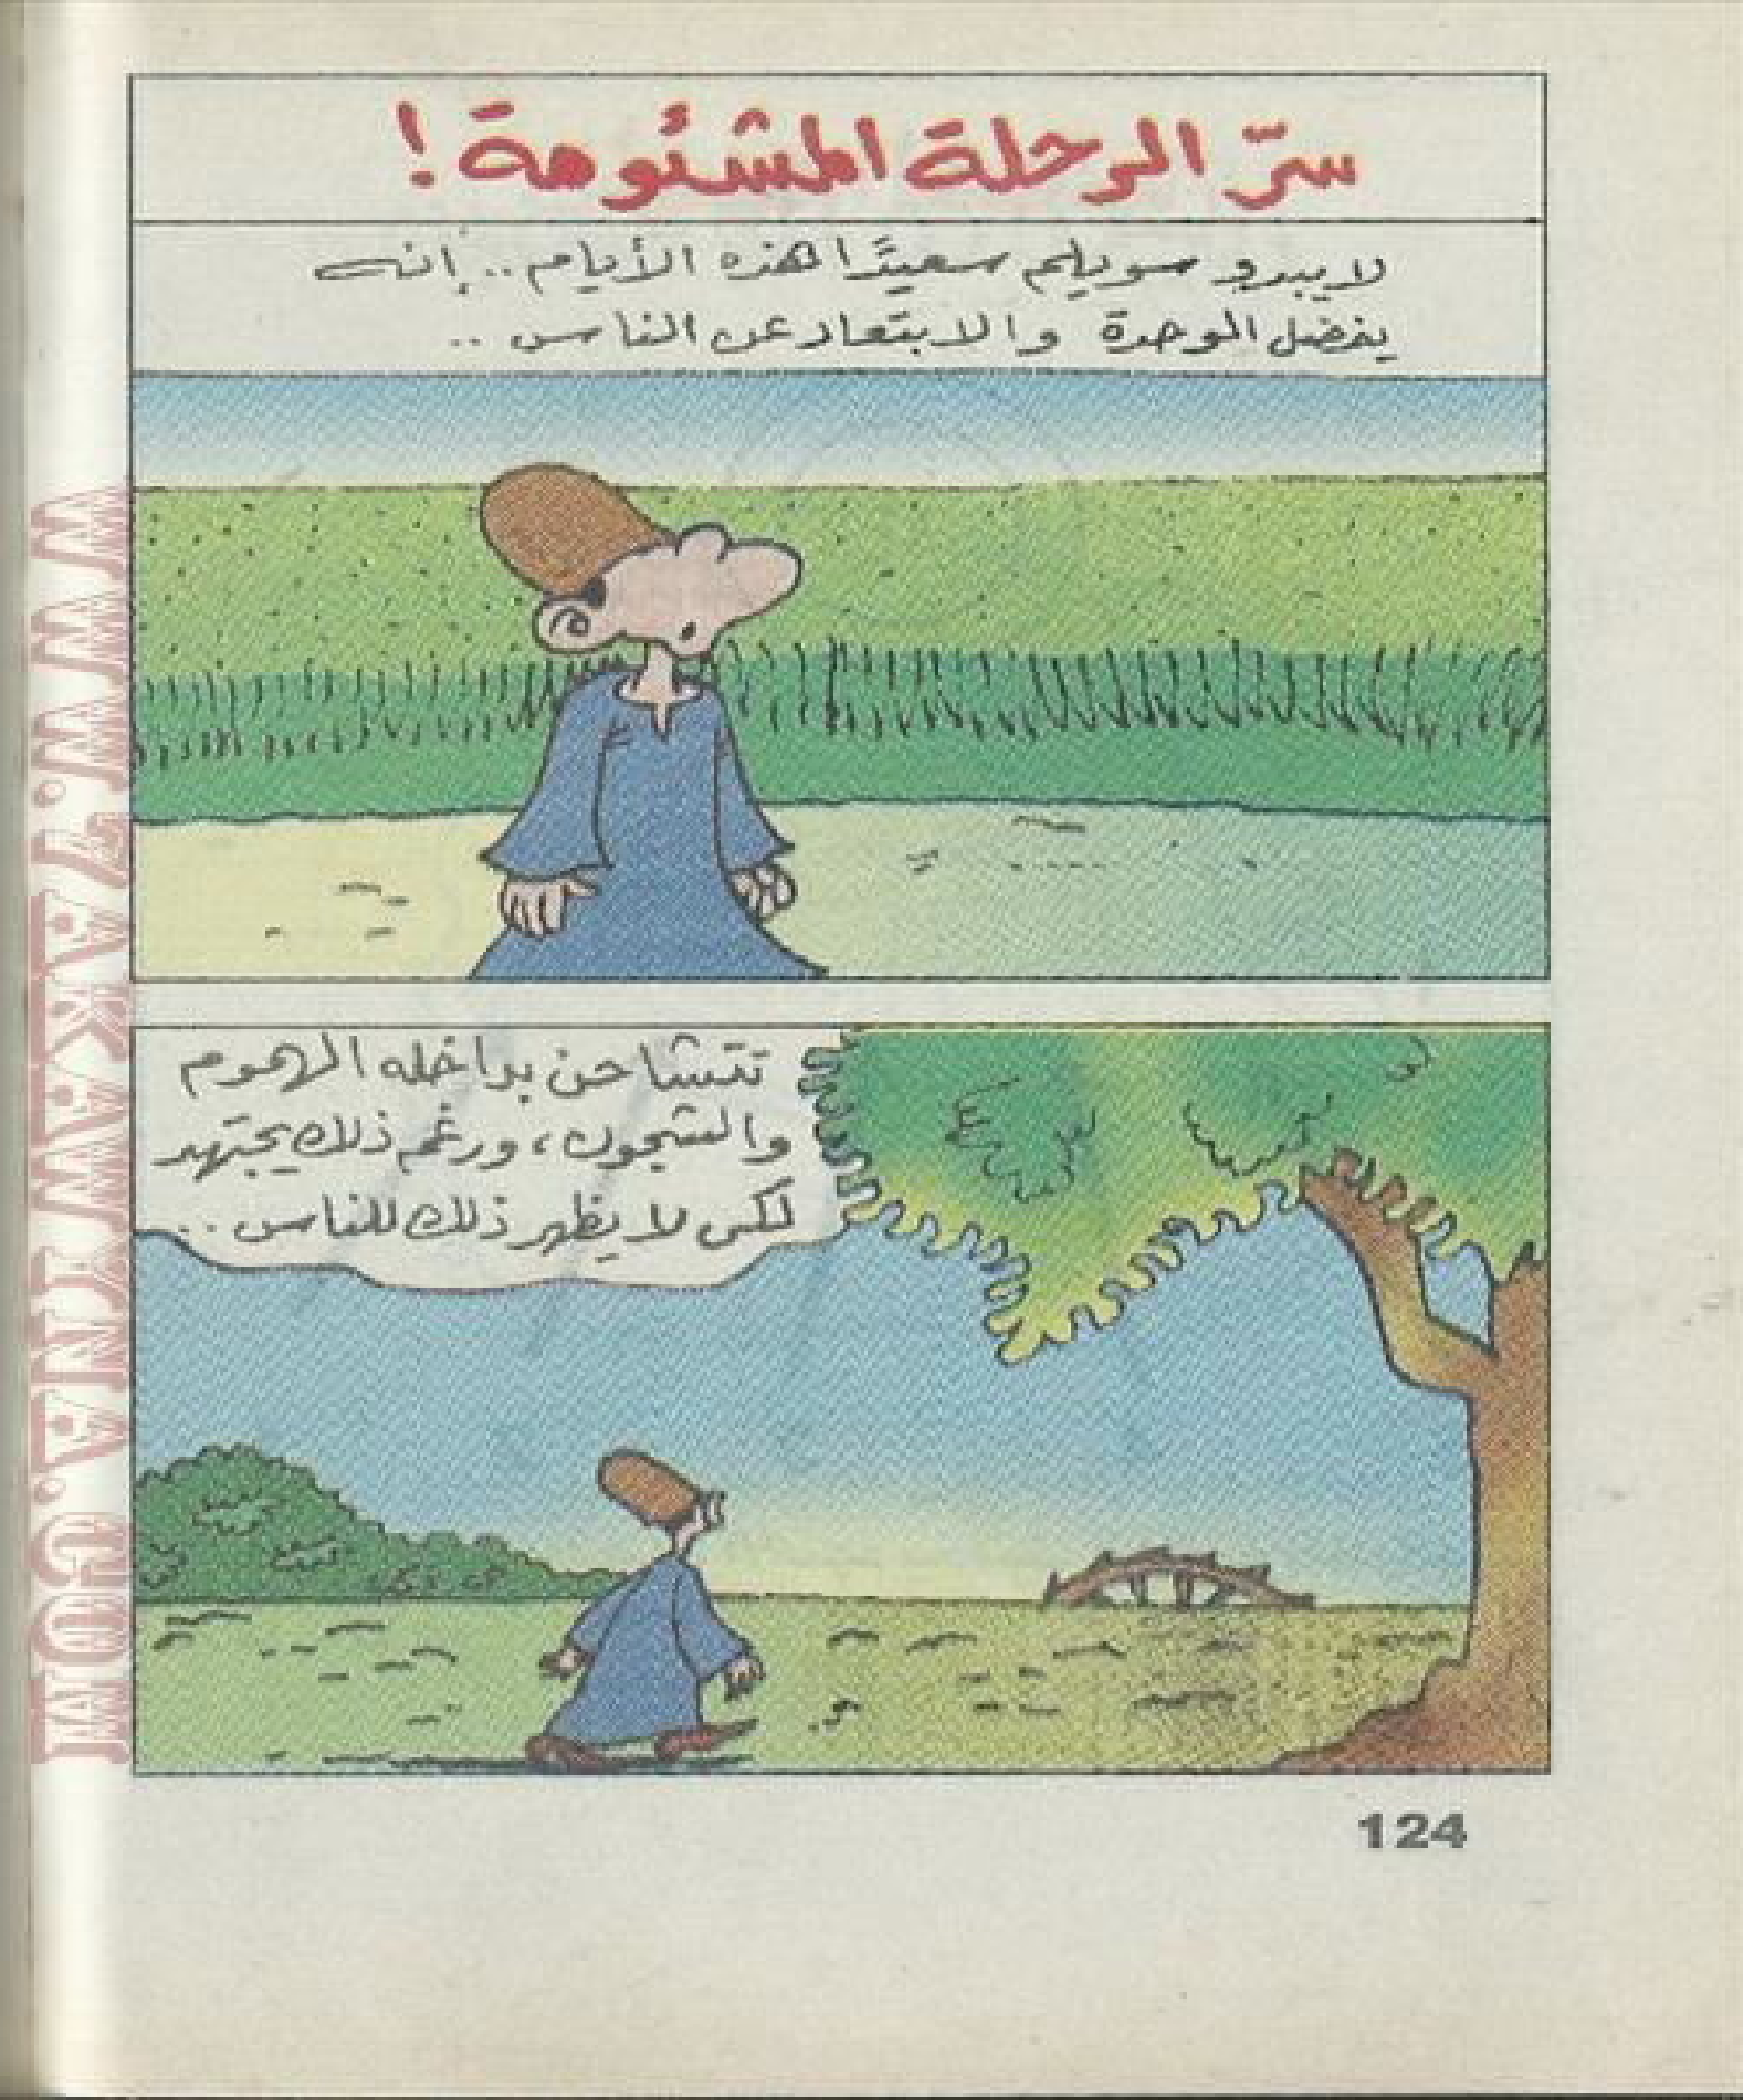 سرّ الرحلة المشئومة!
لا يبدو سويلم سعيدًا هذه الأيام .. إنه
يفضل الوحدة والابتعاد عن الناس ..
تتشاحن بداخله الهموم
والشجون، ورغم ذلك يجتهد
لكى لا يظهر ذلك للناس ..
124
WWW.7AKAWEINA.COM